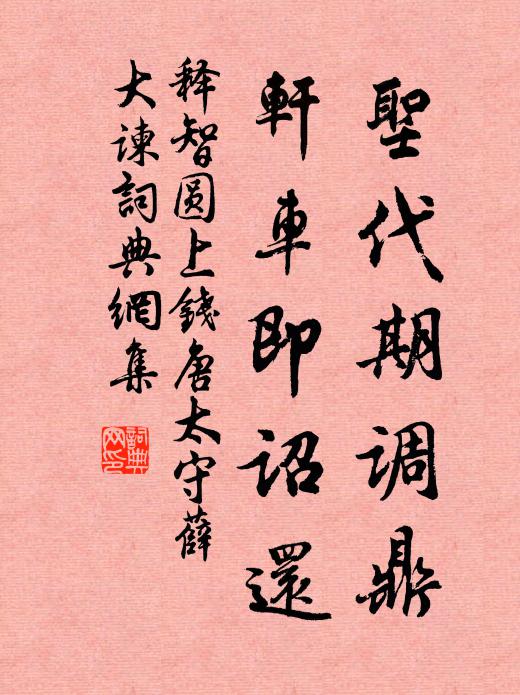 聖代期调鼎
軒車即詔還
释智圆上錢唐太守薛
大谏詞典網集
詞典
网印